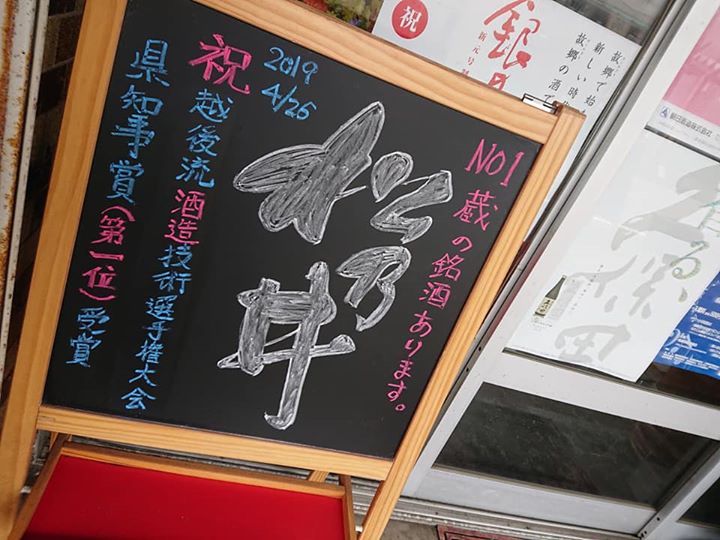 No1 蔵の銘酒あります。
松乃井
2019
4/26
祝 越後流酒造技術選手権大会
県知事賞(第一位)受賞
祝
朝日酒造株式会社
故郷で
新しい時
故郷の酒で